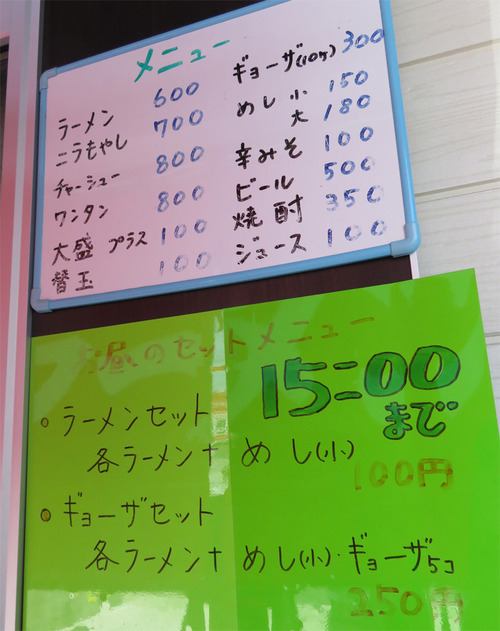 メニュー
ラーメン 600
ニラもやし 700
チャーシュー 800
ワンタン 800
大盛 プラス 100
替玉 100
ギョーザ(10ケ) 300
めし 小 150
大 180
辛みそ 100
ビール 500
焼酎 350
ジュース 100
お昼のセットメニュー
15=00
まで
・ラーメンセット
各ラーメン+めし(小)
100円
・ギョーザセット
各ラーメン+めし(小)・ギョーザ5コ
250円